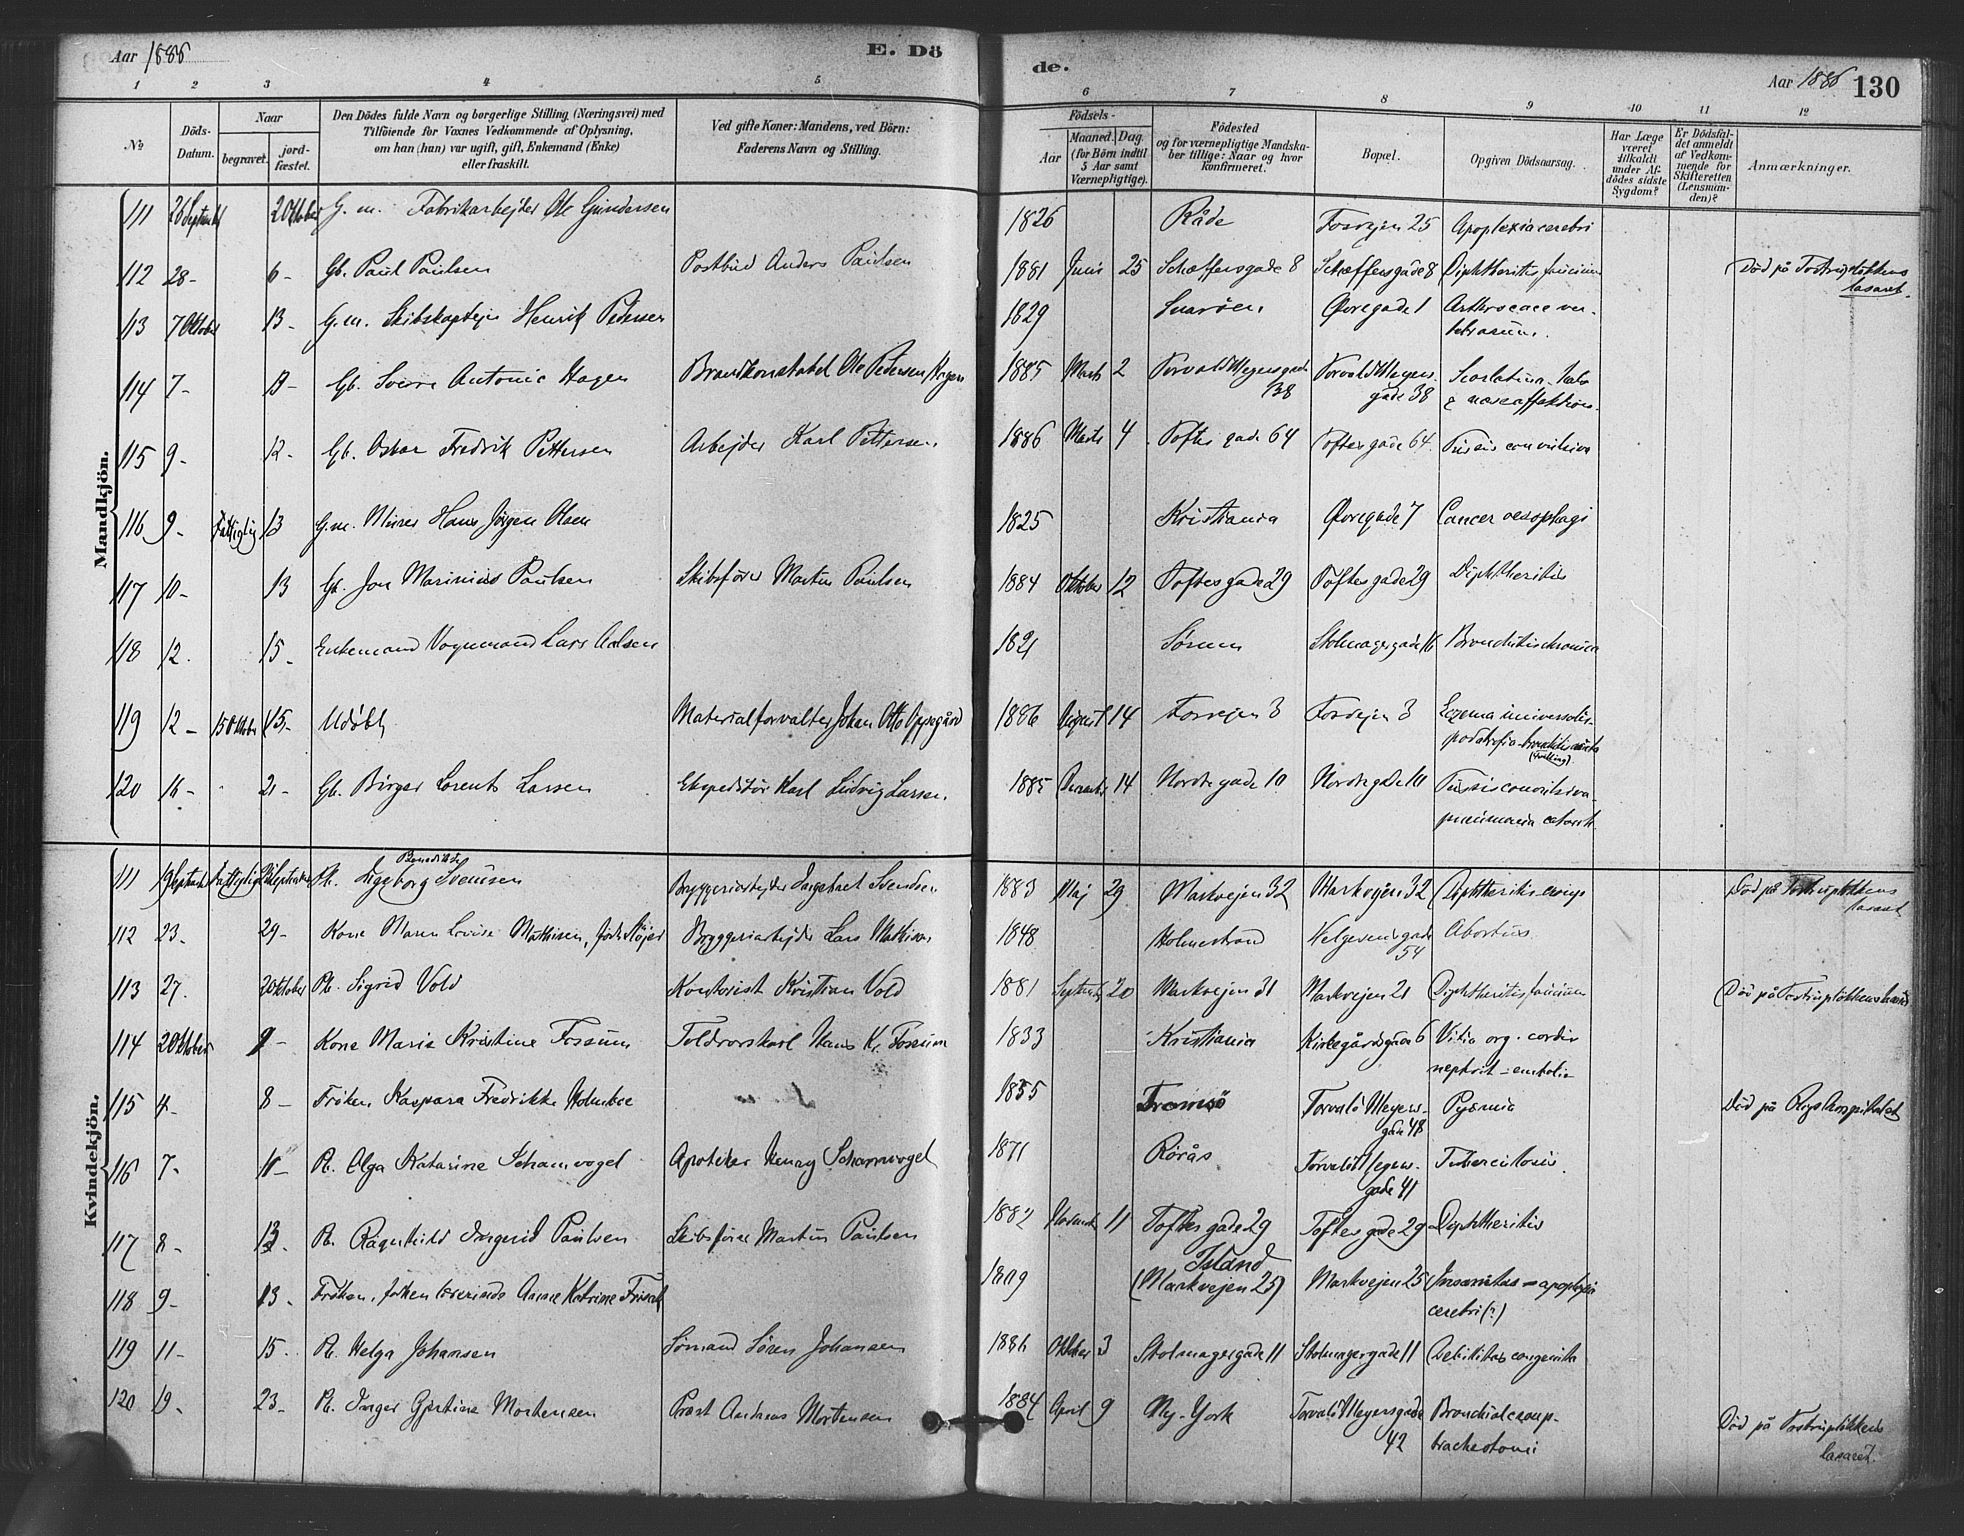 Aar 1886
E. Dö
de.
Aar 1886
130
1 2 3 4 5 6 7 8 9 10 11 12
No
Döds-Datum.
Naar
begravet.
jord-fæstet.
Den Dödes fulde Navn og borgerlige Stilling (Næringsvei) med
Tilföiende for Voxnes Vedkommende af Oplysning,
om han (hun) var ugift, gift, Enkemand (Enke)
eller fraskilt.
Ved gifte Koner: Mandens, ved Börn:
Faderens Navn og Stilling.
Födsels-
Aar
Maaned. Dag.
(for Börn indtil
5 Aar samt
Værnepligtige).
Födested
og for værnepligtige Mandska-
ber tillige: Naar og hvor
konfirmeret.
Bopæl.
Opgiven Dödsaarsag.
Har Læge
været
tilkaldt
under Af-
dödes sidste
Sygdom?
Er Dödsfal-
det anmeldt
af Vedkom-
mende for
Skifteretten
(Lensman-
den)?
Anmærkninger.
Mandkjön.
111 26 Septembr 2 Oktober G. m. Fabrikarbejder Ole Gundersen 1826 Råde Fosvejen 25 Apoplexia cerebri
112 28- 6- Gb. Paul Paulsen Postbud Anders Paulsen 1881 Juni 25 Schæffersgade 8 Schæffersgade 8 Diphtheritis faucium Död på Tostrupløkkens
lasaret.
113 7 Oktober 13- G.m. Skibskaptejn Henrik Pedersen 1829 Snarøen Øvregade 1 Arthrocace ver-
tebrarum.
114 7- 13- Gb. Sverre Antonie Hagen Brandkonstabel Ole Pedersen Hagen 1885 Marts 2 Torvald Meyersgade
38 Torvald Meyers-
gade 38 Scarlatina- hals
& næseaffektion.
115 9- 12- Gb. Oskar Fredrik Pettersen Arbejder Karl Pettersen. 1886 Marts 4 Toftes gade 64 Toftesgade 64. Tussis convulsiva
116 9- Fattiglig 13 G.m. Murer Hans Jörgen Olsen 1825 Kristiania Øvregade 7 Cancer oesophagi
117 10- 13 Gb. Jon Marinius Paulsen Skibsfører Martin Paulsen 1884 Oktober 12 Toftesgade 29 Toftesgade 29 Diphtheritis
118 12. 15- Enkemand Vognmand Lars 1821 Sörum Stolmagergade 16 Bronchitis chronica
119 12- 15 Oktober 15- Udöbt Materialforvalter Johan Otto Oppegård 1886 August 14 Fosvejen 3 Fosvejen 3 Eczema universalis-
pædatrofia-bronkitis acuta
(Tvilling)
120 16- 21- Gb. Birger Lorents Larsen Ekspeditör Karl Ludvig Larsen. 1885 Decembr 14 Nordregade 10 Nordregade 10 Tussis convulsiva-
pneumonia catarrh.
Kvindekjön.
111 19 Septemb Fattiglig Septemb Pb. Ingeborg Benedikte Svensen Bryggeriarbejder Svendsen 1883 Maj 29 Markvejen 32 Markvejen 32 Diphtheritis croup Död på Tostrupløkkens
lasaret
112 23- 29- Kone Maren Lovise Mathisen, født Bryggeriarbejder Lars Mathisen 1848 Holmestrand Helgesens gade
54 Abortus.
113 27. 2 Oktober Pb. Sigrid Vold Kontorist Kristian Vold 1881 Septembr 20 Markvejen 31 Markvejen 21 Diphtheritis faucium Död på Tostrupløkkens lasaret
114 2 Oktober 9- Kone Marie Kristine Fossum Toldrorskarl Hans Kr. Fossum 1833 Kristiania Kirkegårdsgade 6 Vitia org. cordis
nephrit-embolie
115 4- 8- Fröken Kaspara Fredrikke Holmboe 1855 Tromsö Torvald Meyers-
gade 48 Pyæmia Död på Rigshospitalet
116 7- 11- P. Olga Katarine Scharnvogel Apoteker Henry Scharnvogel 1871 Rörås Torvald Meyers-
gade 41 Tuberculosis.
117 8- 13. P. Ragnhild Ingerid Paulsen Skibsförer Martin Paulsen 1882 Novembr 11 Toftes gade 29 Toftesgade 29 Diphtheritis
118 9- 13- Fröken, Anne Katrine 1809 Island
(Markvejen 25) Markvejen 25 Insanitas - apoplexia
cerebri (?)
119 11- 15. P. Helga Johansen Sömand Sören Johansen 1886 Oktober 3 Stolmagergade 11 Stolmagergade 11 Debilitas congenita
120 19- 23- P. Inger Gjertine Mortensen Prest Andreas Mortensen 1884 April 9 Ny-York Torvald Meyersgade
42 Bronchialcroup-
tracheotomi Död på Tostrupløkkens
lasaret.